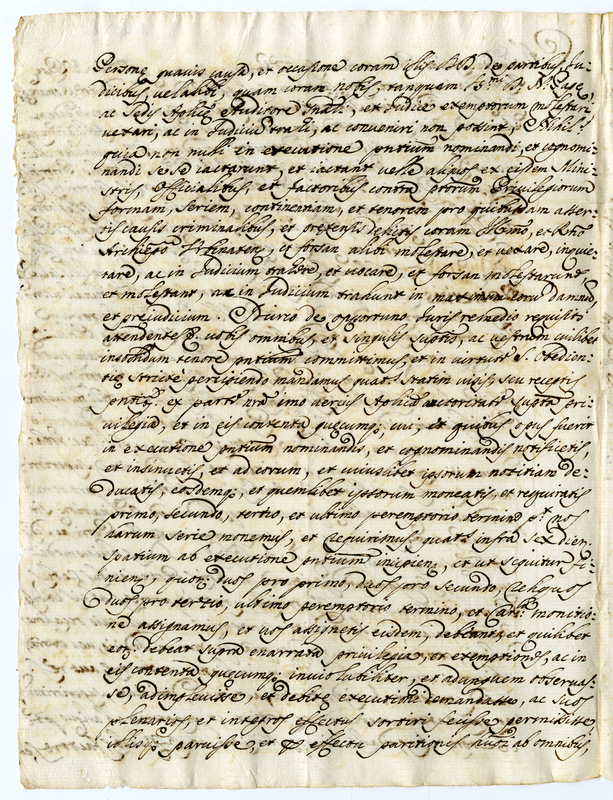 Persone quavis causa, et occasione coram Illis DD. de partibus Ju-
dicibus, vel alibi, quam coram nobis, tanquam
ac Sedis Aplicę et Judice exemptorum molestari
vexari, ac in Judicium trahi, ac conveniri non possint, Nihil.
quia non nulli in executione pntium nominandi, et cognomi-
nandi se se iactarunt, et iactant velle aliquos ex eisdem Mini-
stris, Officialibus, et factoribus contra ptorum Privilegiorum
formam, seriem, continentiam, et tenorem pro quibusdam asser-
tis causis criminalibus, et pretensis debitis coram Illmo, et Rmo
Archiepo et forsan alibi molestare, et vexare, inquie-
tare, ac in Judicium trahere, et vocare, et forsan molestarunt,
et molestant, ac in Judicium trahunt in maximum eorum damnum,
et prejudicium. Quare de opportuno Juris remedio requisiti
attendentes vobis omnibus, et singulis supttis, ac vestrum cuilibet
insolidum tenore pntium committimus, et in virtute S. Obedien-
tię strictè percipiendo mandamus quats. statim visis, seu receptis
pntibq; ex parte nra imo verius Aplica auctoritate supta pri-
vilegia, et in eis contenta quęcumq; cui, et quibus opus fuerit
in executione pntium nominandis, et cognominandis notificetis
et insinuetis, et ad eorum, et cuiuslibet ipsorum notitiam de-
ducatis, eosdemq; et quemlibet ipsorum moneatis, et requiratis
primo, secundo, tertio, et ultimo peremptorio termino pt nos
harum serie monemus, et requirimus quats infra sex dierum
spatium ab executione pntium incipien, et ut sequitur fi-
nien, quorq; duos pro primo, duos pro secundo, reliquos
duos pro tertio, ultimo peremptorio termino, et monitio-
ne assignamus, et vos assignetis eisdem, debeant, et quilibet
eorq; debeat supra enarrata privilegia, et exemptiones, ac in
eis contenta quęcumq; inviolabiliter, et adunguem observas-
se, adimplevisse, et debitę executioni demandasse, ac suos
plenarios, et integros effectus sortiri fecisse, permisisse,
illisq; paruisse, et effectu paritionis ab omnibus,